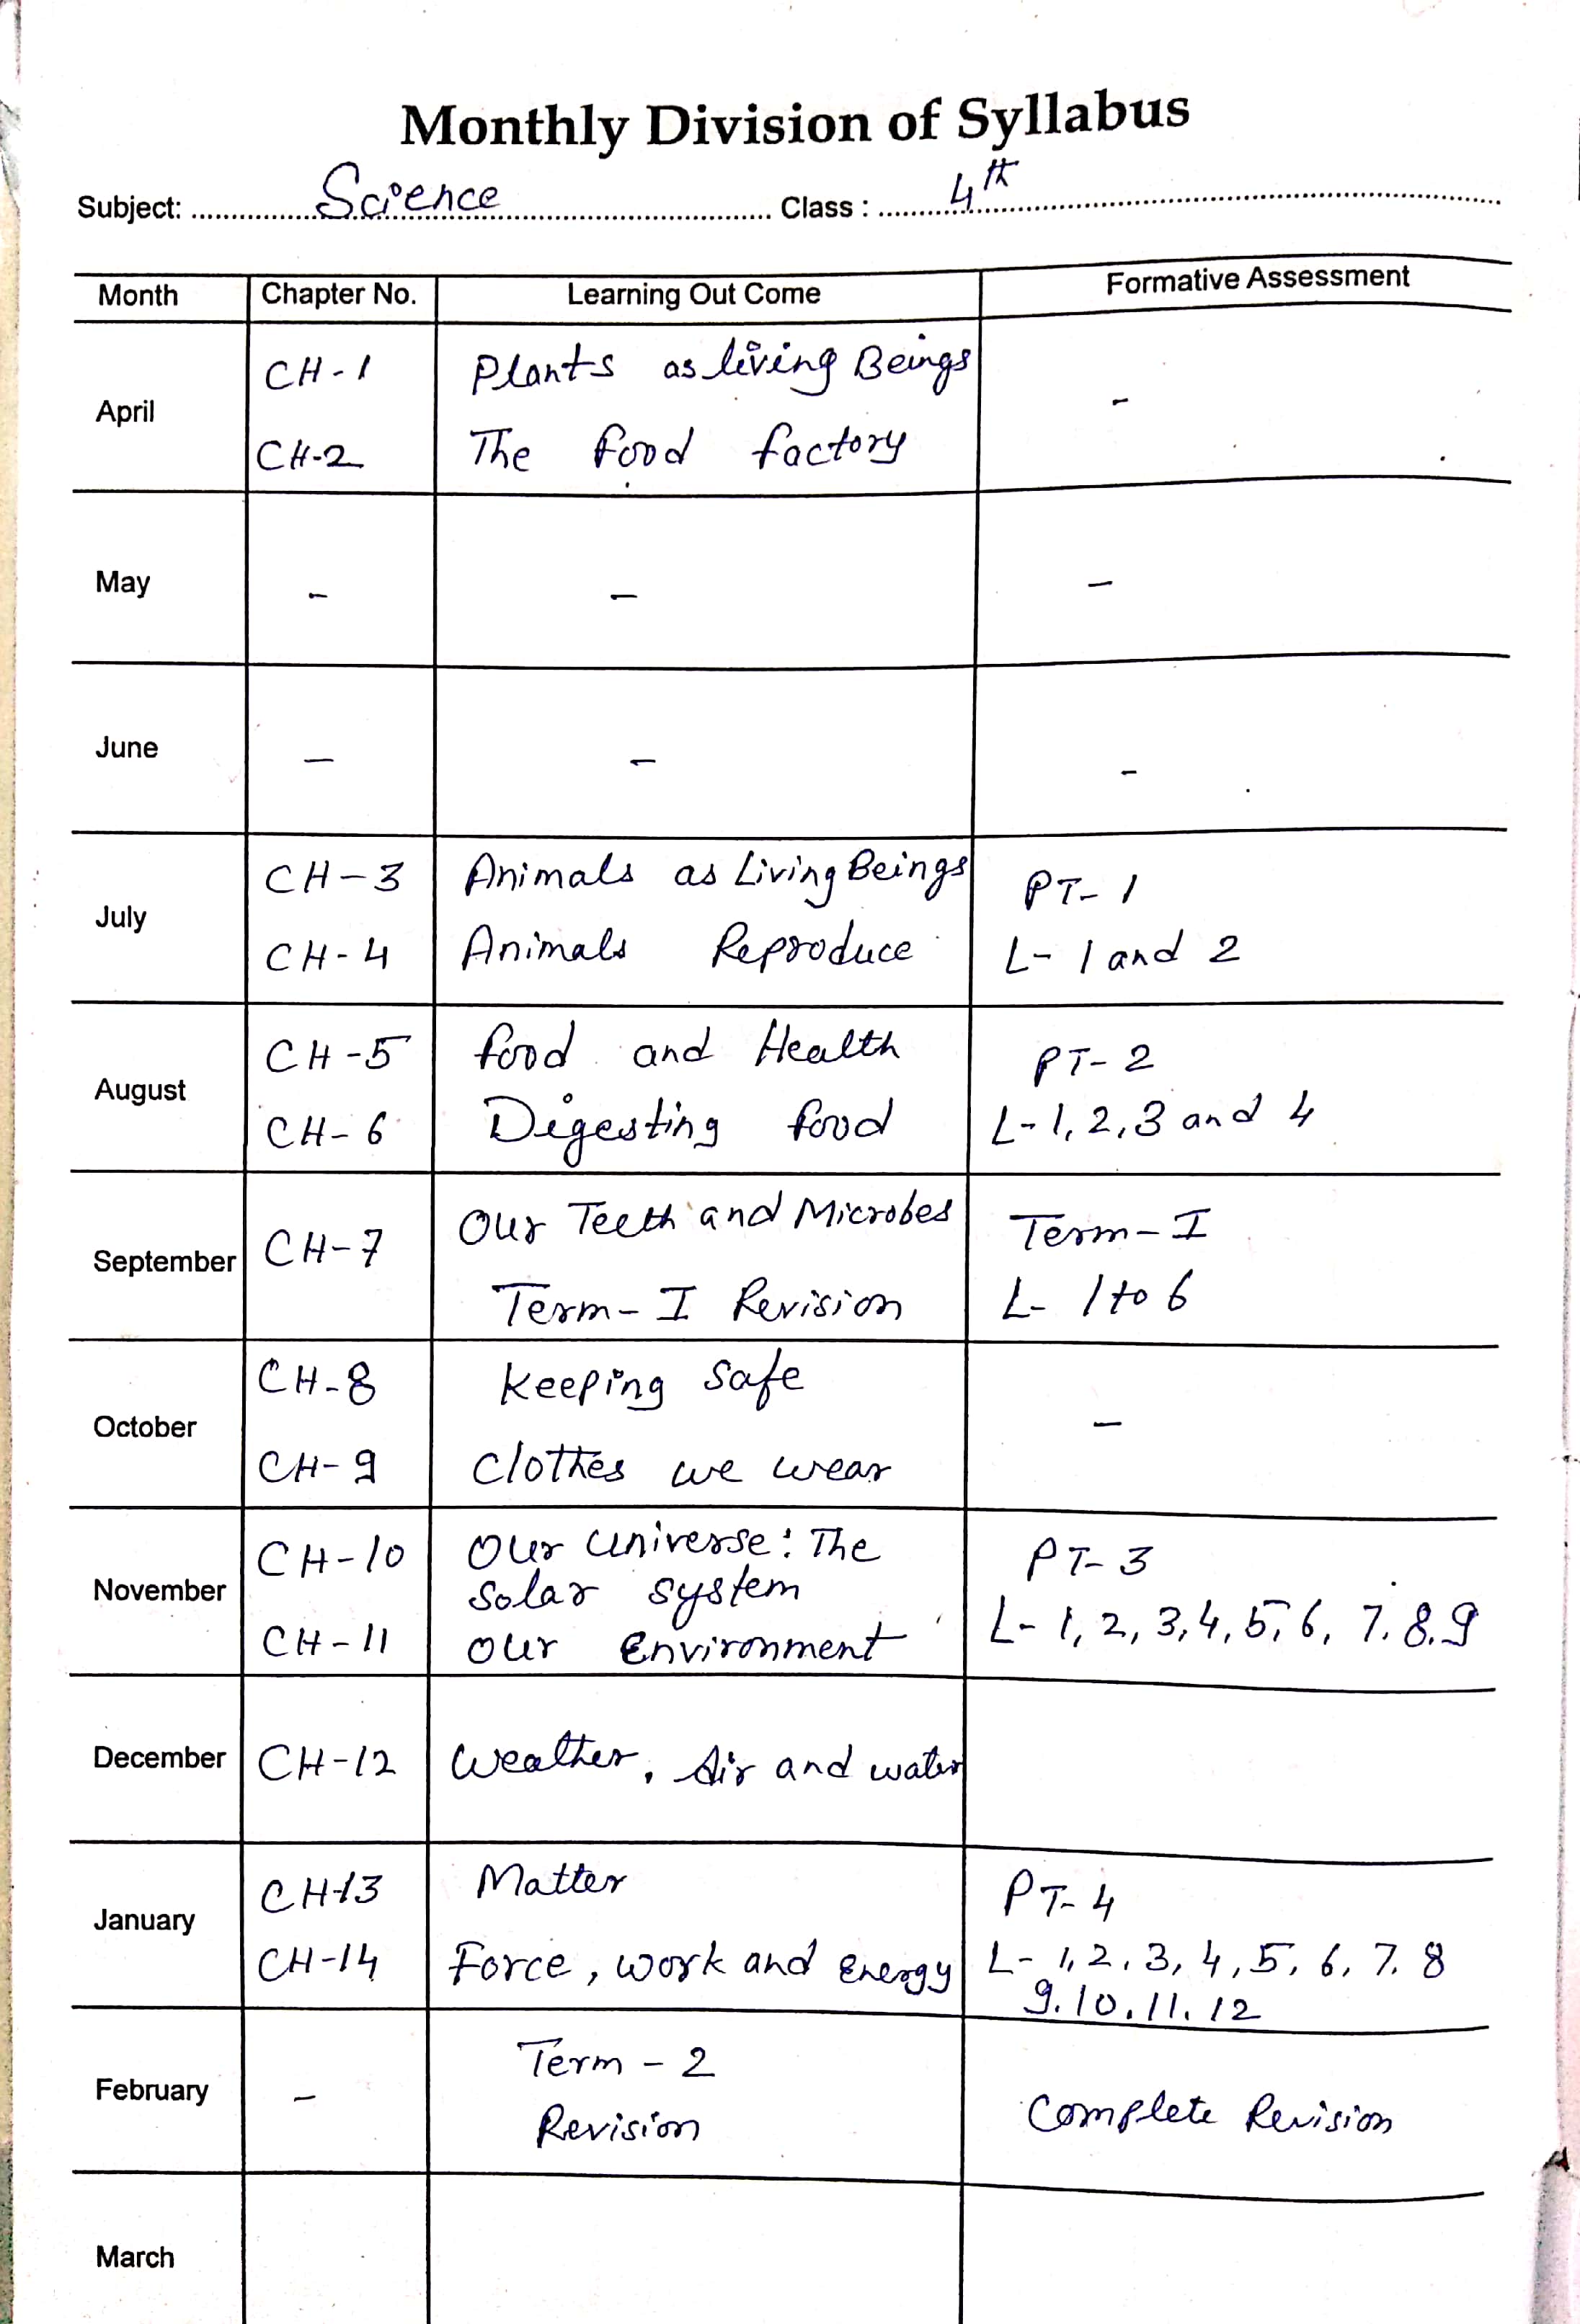 Monthly Division of Syllabus
Subject: Science Class : 4th
Month Chapter No. Learning Out Come Formative Assessment
April
CH-1 Plants as living Beings -
CH-2 The food factory
May - - -
June - - -
July
CH-3 Animals as Living Beings PT-1
CH-4 Animals Reproduce L- 1 and 2
August
CH-5 food and Health PT-2
CH-6 Digesting food L-1,2,3 and 4
September
CH-7 Our Teeth and Microbes Term-I
Term-I Revision L- 1 to 6
October
CH-8 Keeping Safe -
CH-9 Clothes we wear
November
CH-10 Our Universe: The PT-3
Solar system
CH-11 Our Environment L-1, 2, 3,4,5,6, 7.8.9
December CH-12 Weather, Air and water
January
CH-13 Matter PT-4
CH-14 Force, work and Energy L- 1,2,3,4,5,6,7.8
9.10.11.12
February
- Term - 2
Revision Complete Revision
March